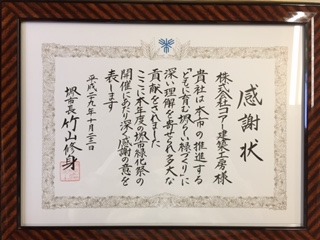 感謝状
株式会社コアー建築工房様
貴社は本市の推進する
「ともに育む堺らい緑づくり」に
深い理解を寄せられ多大な
貢献をされました
ここに本年度の堺市緑化祭の
開催にあたり深く感謝の意を
表します
平成二九年十月二十二日
堺市長 竹山修身